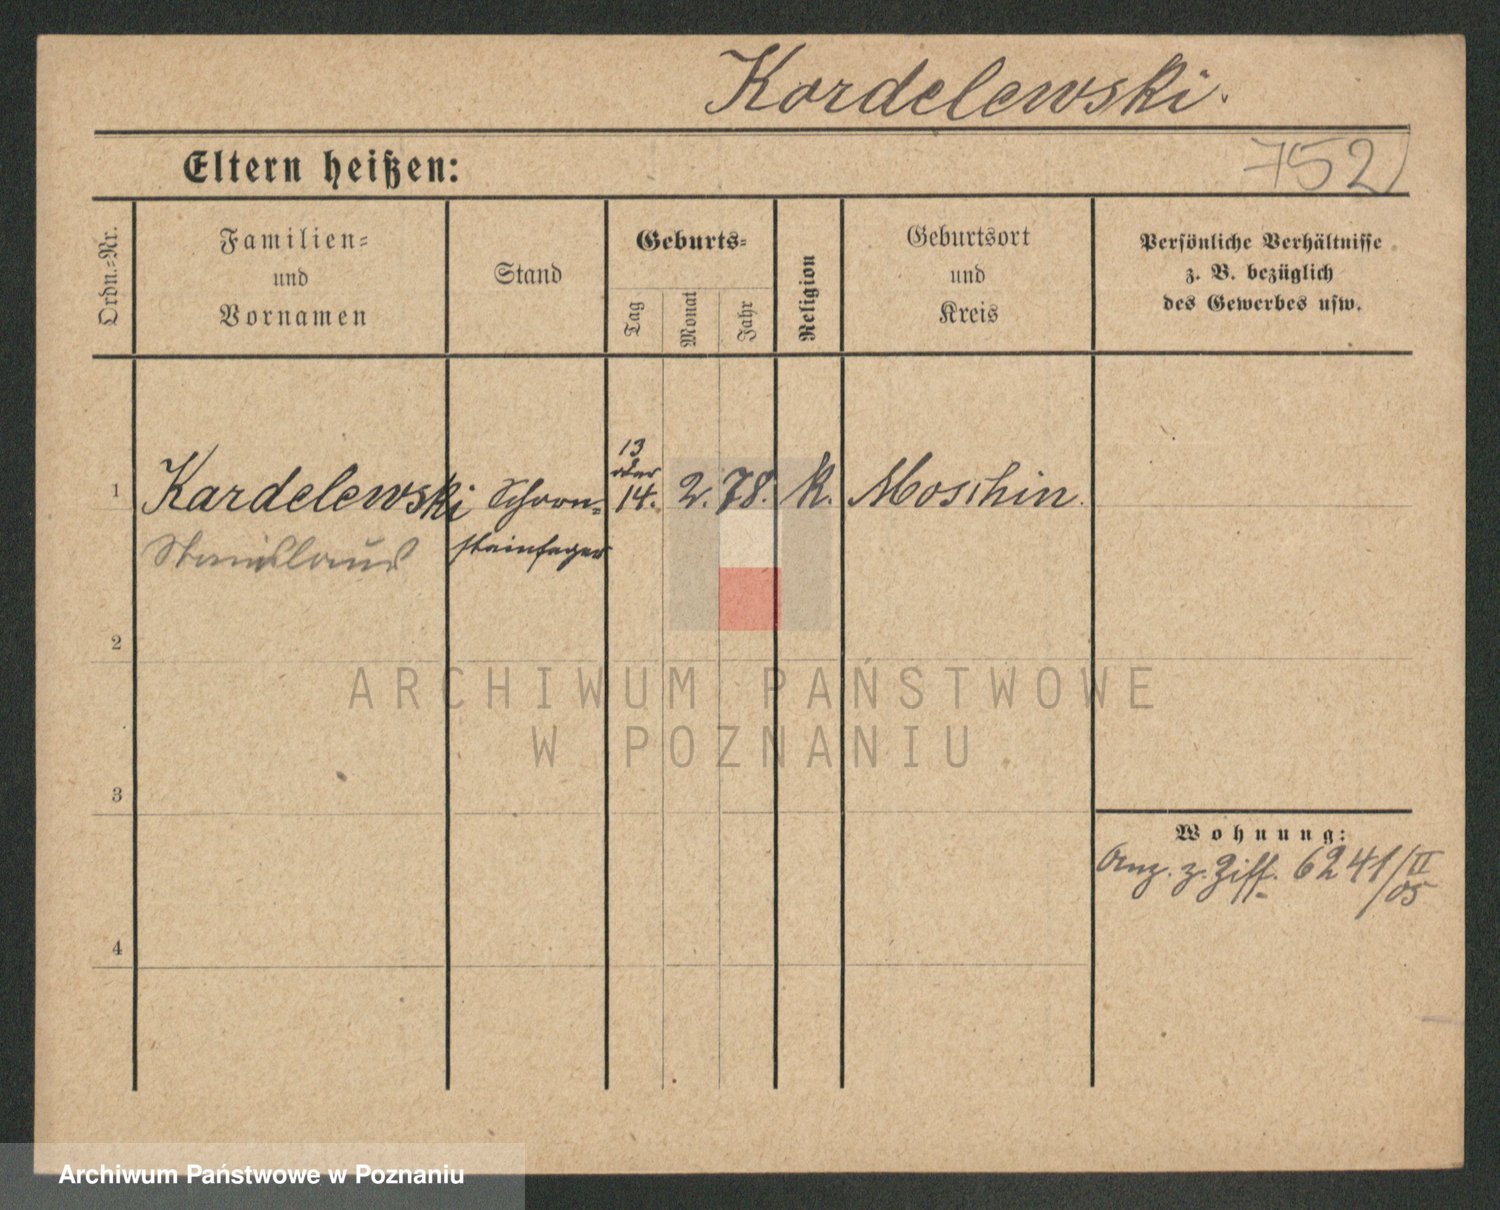 Kardelewski.
Eltern heißen:
752
Ordn.-Nr.
Familien-
und
Vornamen
Stand
Geburts-
Tag
Monat
Jahr
Religion
Geburtsort
und
Kreis
Persönliche Verhältnisse
z. B. bezüglich
des Gewerbes usw.
13
oder
1 Kardelewski Schorn- 14. 2. 78. k. Moschin.
Stanislaus steinfeger
2
ARCHIWUM PAŃSTWOWE
W POZNANIU
3
Wohnung:
Anz. z. Ziff. 6241/II
/05
4
Archiwum Państwowe w Poznaniu